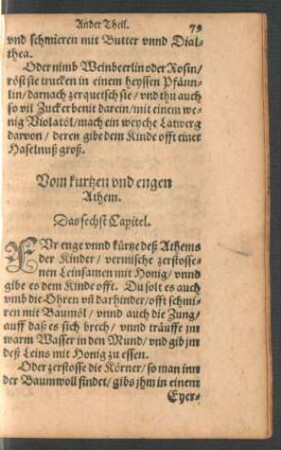 Ander Theil. 79
vnd schmieren mit Butter vnnd Dial-
thea.
Oder nimb Weinbeerlin oder Rosin/
röst sie trucken in einem heyssen Pfänn-
lin/ darnach zerquetsch sie/ vnd thu auch
so vil Zuckerbenit darein/ mit einem we-
nig Violatöl/ mach ein weyche Latwerg
darvon/ deren gibe dem Kinde offt einer
Haselnuß groß.
Vom kurtzen vnd engen
Athem.
Das sechst Capitel.
FVr enge vnnd kürtze deß Athems
der Kinder/ vermische zerstosse-
nen Leinsamen mit Honig/ vnnd
gibe es dem Kinde offt. Du solt es auch
vmb die Ohren vñ darhinder/ offt schmi-
ren mit Baumöl/ vnnd auch die Zung/
auff daß es sich brech/ vnnd träuffe jm
warm Wasser in den Mund/ vnd gib jm
deß Leins mit Honig zu essen.
Oder zerstosse die Körner/ so man inn
der Baumwoll findet/ gibs jhm in einem
Eyer-